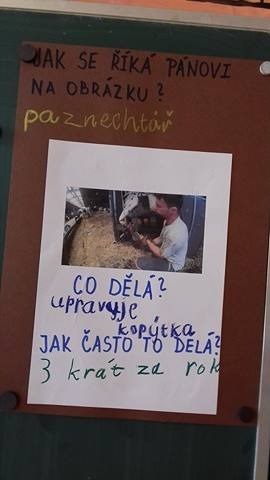 JAK SE ŘÍKÁ PÁNOVI
NA OBRÁZKU?
paznechtář
CO DĚLÁ?
upravuje
kopýtka
JAK ČASTO TO DĚLÁ?
3 krát za rok